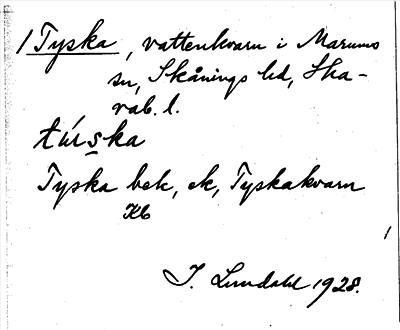 1 Tyska, vattenkvarn i Marums
sn, Skånings hd, Ska-
rab. l.
túrska
Tyska bek, ek, Tyskakvarn
Kb
I. Lundahl 1928.